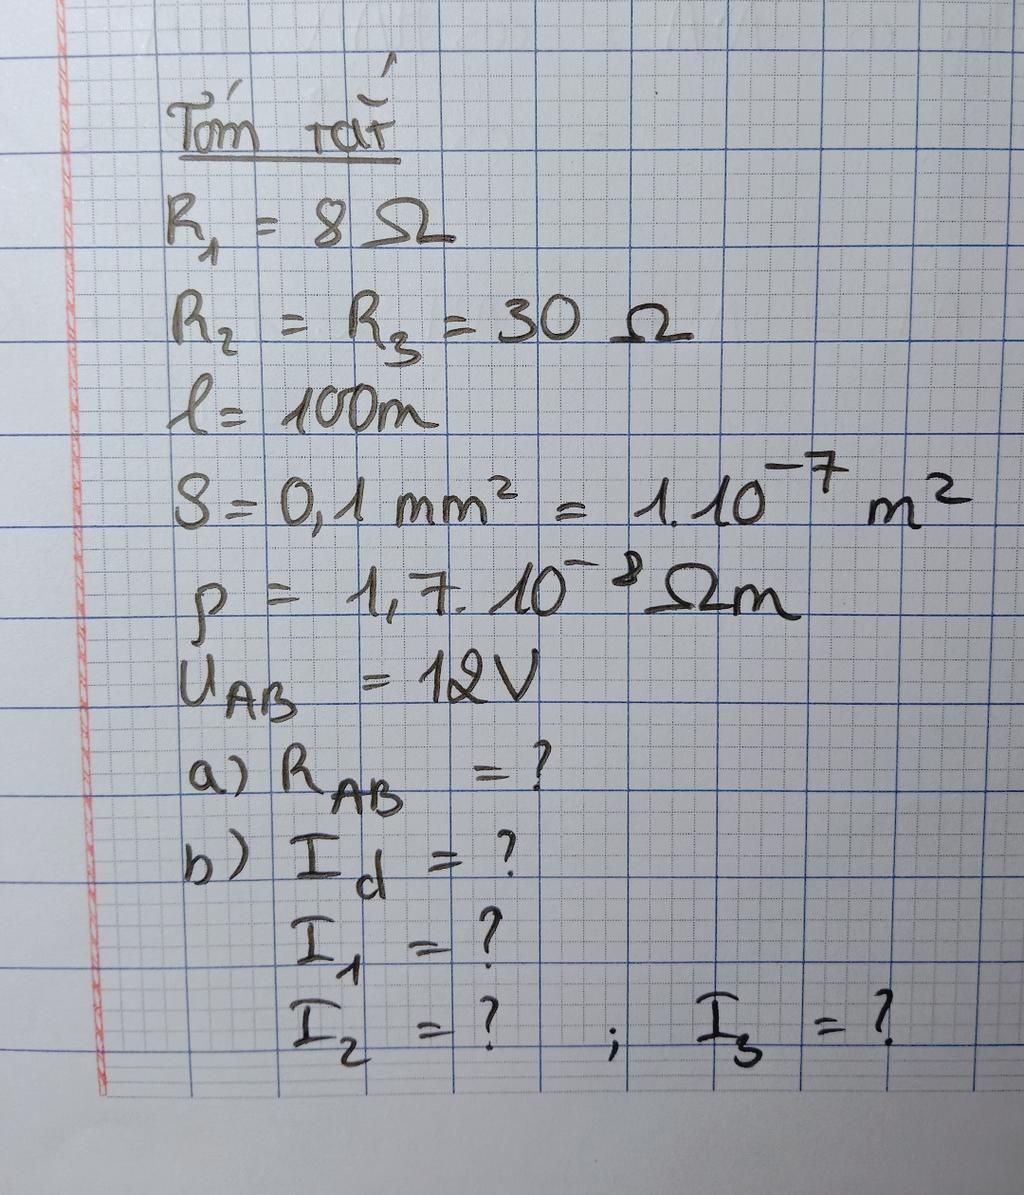 Tóm tắt
R₁ = 8 Ω
R₂ = R₃ = 30 Ω
l = 100m
S = 0,1 mm² = 1.10⁻⁷ m²
ρ = 1,7.10⁻⁸ Ωm
U_AB = 12V
a) R_AB = ?
b) I_d = ?
I₁ = ?
I₂ = ? ; I₃ = ?